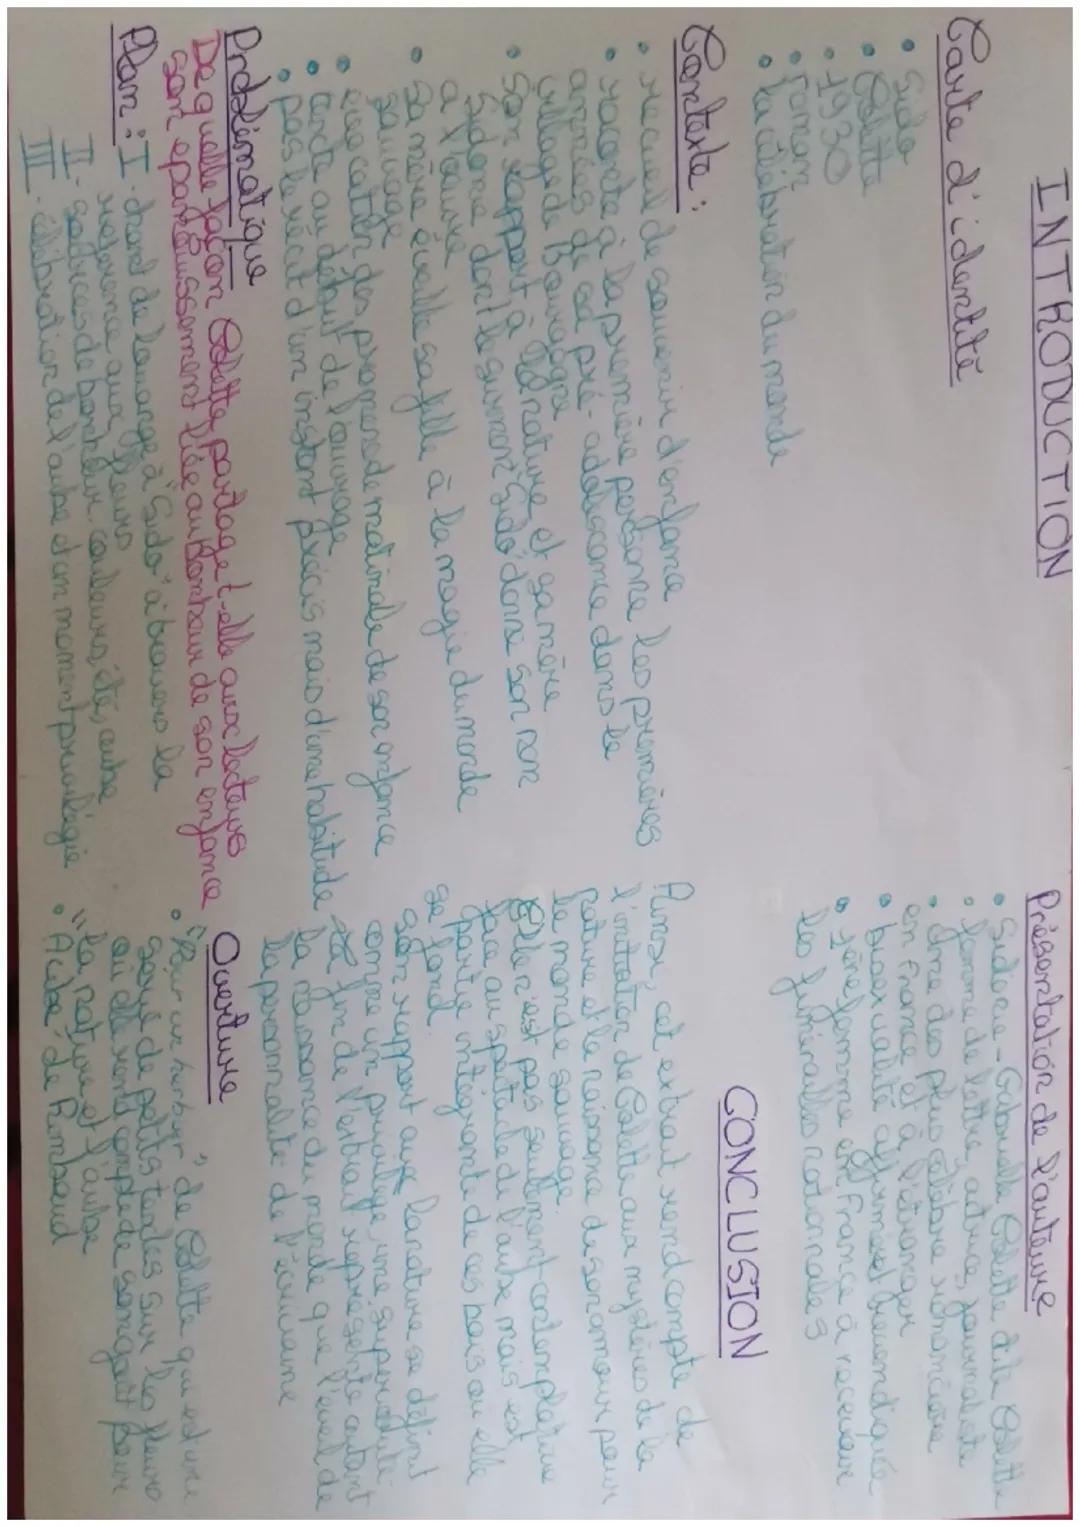 INTRODUCTION
Carte d'identité
• Sido
• Colette
• 1930
• roman
• la célébration du monde
Contexte :
• recueil de souvenir d'enfance
• raconte à la première personne les premières
années de sa pré-adolescence dans le
village de bourgogne
• Son rapport à la nature et sa mère
Sidonie dont le surnom "Sido" donne son nom
a l'œuvre
• Sa mère éveille sa fille à la magie du monde
sauvage
• évocation des promenade matinale de son enfance
• texte au début de l'ouvrage
• pas le récit d'un instant précis mais d'une habitude
Problématique
De quelle façon Colette partage t-elle aux lecteurs
son épanouissement liée au bonheur de son enfance
Plan : I - chant de louange à "Sido" à travers la
référence aux fleurs
II - sources de bonheur: couleurs, été, aube
III - célébration de l'aube d'un moment privilégié
Présentation de l'auteure
• Sidonie-Gabrielle Colette dite Colette
• femme de lettre, autrice, journaliste
• une des plus célèbre romancière
en France et à l'étranger
• bisexualité affirmée et revendiquée
• 2ème femme en France à recevoir
les funérailles nationnales
CONCLUSION
Ainsi, cet extrait rend compte de
l'initiation de Colette aux mystères de la
nature et la naissance de son amour pour
le monde sauvage.
Elle n'est pas seulement contemplative
face au spectacle de l'aube mais est
partie intégrante de ces bois où elle
se fond.
Son rapport aux la nature se définit
comme un privilège, une supériorité
La fin de l'extrait représente autant
la naissance du monde que l'éveil de
la personnalité de l'écrivaine
Ouverture
• "Pour un herbier" de Colette qui est une
série de petits textes sur les fleurs
où elle rend compte de son goût pour
la nature et l'aube
• "Aube" de Rimbaud